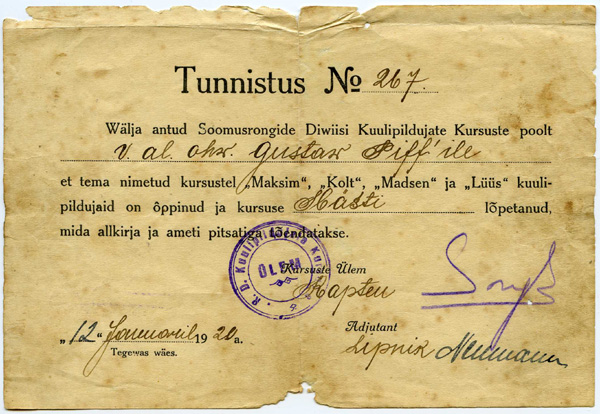 Tunnistus No 267.
Wälja antud Soomusrongide Diwiisi Kuulipildujate Kursuste poolt
v. al. ohv. Gustav Piff'ile
et tema nimetud kursustel „Maksim", „Kolt", „Madsen" ja „Lüüs" kuuli-
pildujaid on õppinud ja kursuse Hästi lõpetanud,
mida allkirja ja ameti pitsatiga tõendatakse.
ÜLEM
Kursuste Ülem
Kapten
„12" Jaanuaril 1920 a.
Tegewas wäes.
Adjutant
Lipnik Neumann